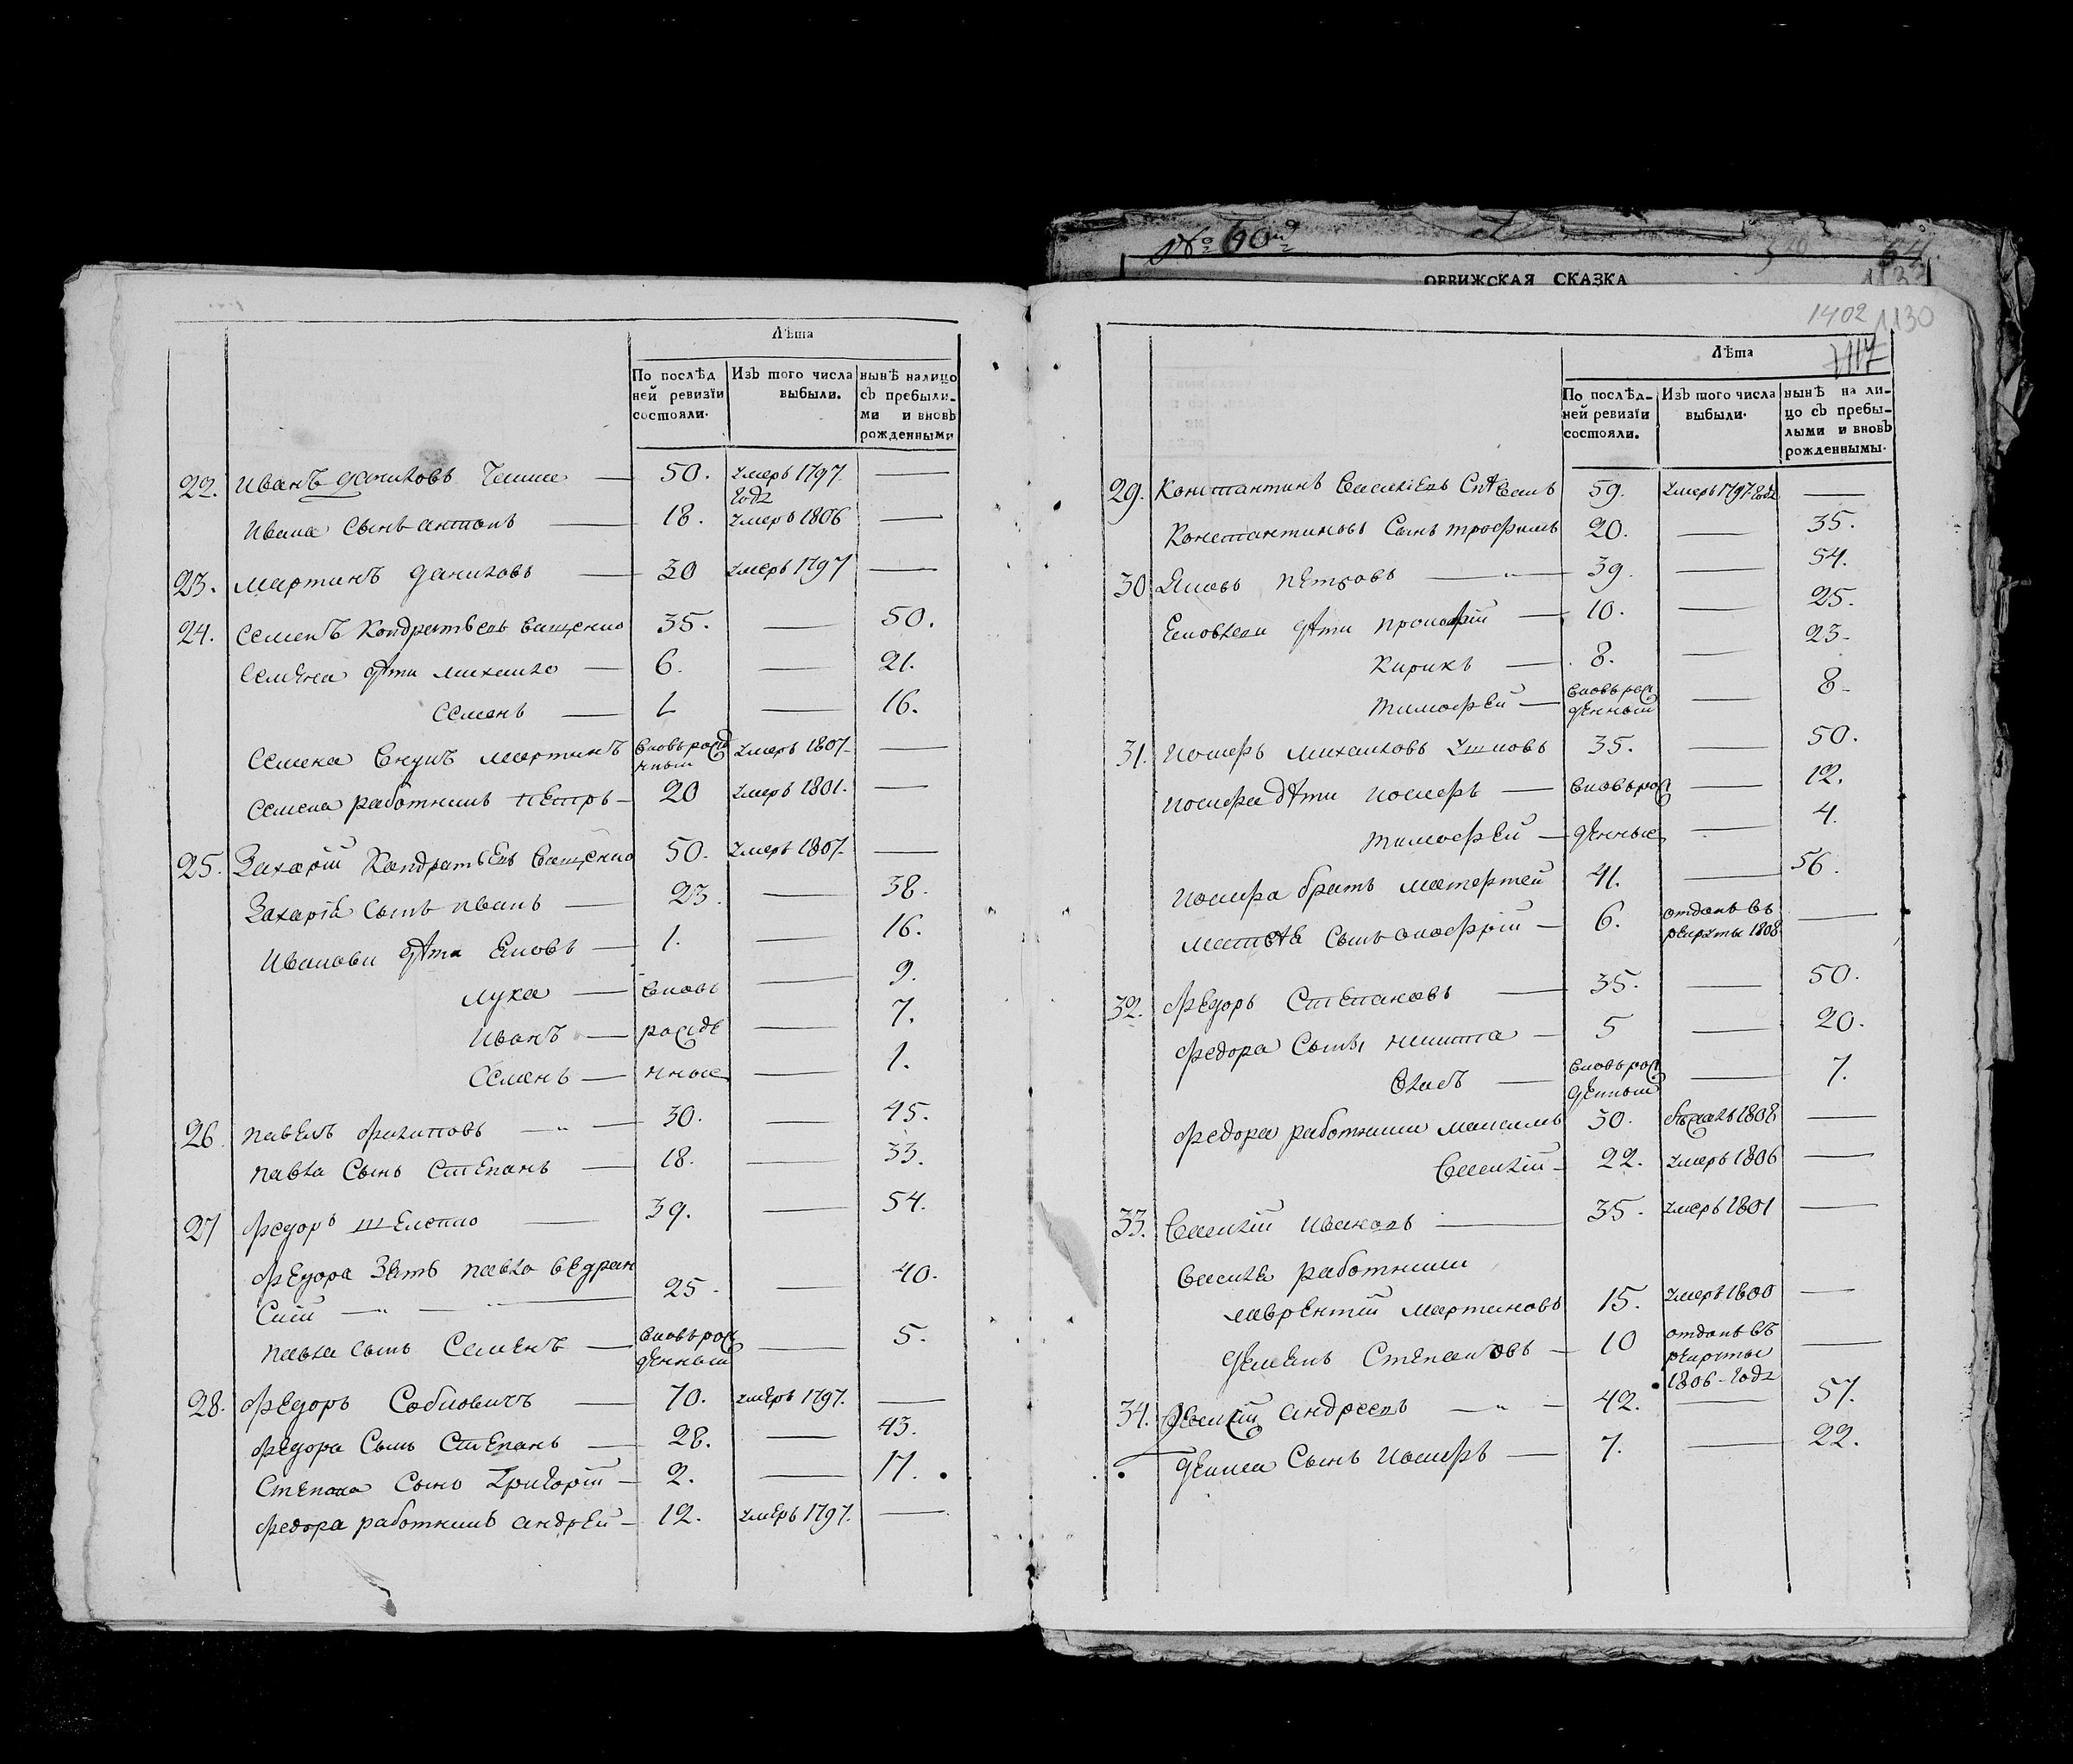 № 60й
ОРВИЖСКАЯ СКАЗКА
Лѣта
По послѣд
ней ревизїи
состояли.
Изъ того числа
выбыли.
нынѣ налицо
съ пребыли-
ми и вновь
рожденными
22. Иванъ Даниловъ — 50. умеръ 1797 годȣ —
Ивана сынъ антонъ — 18. умеръ 1806 —
23. мартинъ Даниловъ — 30 умеръ 1797 —
24. Семенъ Кондратьевъ Ващенко 35. — 50.
Семена дѣти михайло — 6. — 21.
Семенъ — 1 — 16.
Семена внукъ мартинъ вновь рожд нный умеръ 1807. —
Семена работникъ петръ — 20 умеръ 1801. —
25. Захарїй Кондратьевъ Ващенко 50. умеръ 1807. —
Захарїя сынъ иванъ — 23. — 38.
Ивановы дѣти Яковъ — 1. — 16.
лука — вновь — 9.
Иванъ — рожде — 7.
Семенъ — нные — 1.
26. павелъ филиповъ — 30. — 45.
павла сынъ Степанъ — 18. — 33.
27 федоръ шелепко — 39. — 54.
федора зять павло
25. — 40.
павла сынъ Семенъ — вновь рож денный — 5.
28. федоръ — 70. умеръ 1797. —
федора сынъ Степанъ — 28. — 43.
Степана сынъ Григорїй — 2. — 17.
федора работникъ андрей — 12. умеръ 1797. —
1402 1130
1117
Лѣта
По послѣд-
ней ревизїи
состояли.
Изъ того числа
выбыли.
нынѣ на ли-
цо съ пребы-
лыми и вновь
рожденнымы.
29. Константинъ Васильевъ 59. умеръ 1797 годȣ —
Константиновъ сынъ трофимъ 20. — 35.
30 Яковъ петровъ — 39. — 54.
Яковлевы дѣти прокофїй — 10. — 25.
Кирикъ — 8. — 23.
тимофей — вновь рож денный — 8.
31. иосифъ михайловъ 35. — 50.
иосифа дѣти иосифъ — вновь рож — 12.
тимофей — денные — 4.
иосифа братъ 41. — 56.
сынъ онофрїй — 6. отданъ въ рекруты 1808 —
32. федоръ Степановъ — 35. — 50.
федора сыны никита — 5 — 20.
власъ — вновь рож денный — 7.
федора работники максимъ 30. 1808 —
Василїй — 22. умеръ 1806 —
33. Василїй ивановъ — 35. умеръ 1801 —
Василя работники
лаврентїй мартиновъ 15. умеръ 1800 —
Степановъ — 10 отданъ въ рекруты 1806 годȣ —
34. андреевъ — 42. — 57.
сынъ иосифъ — 7. — 22.